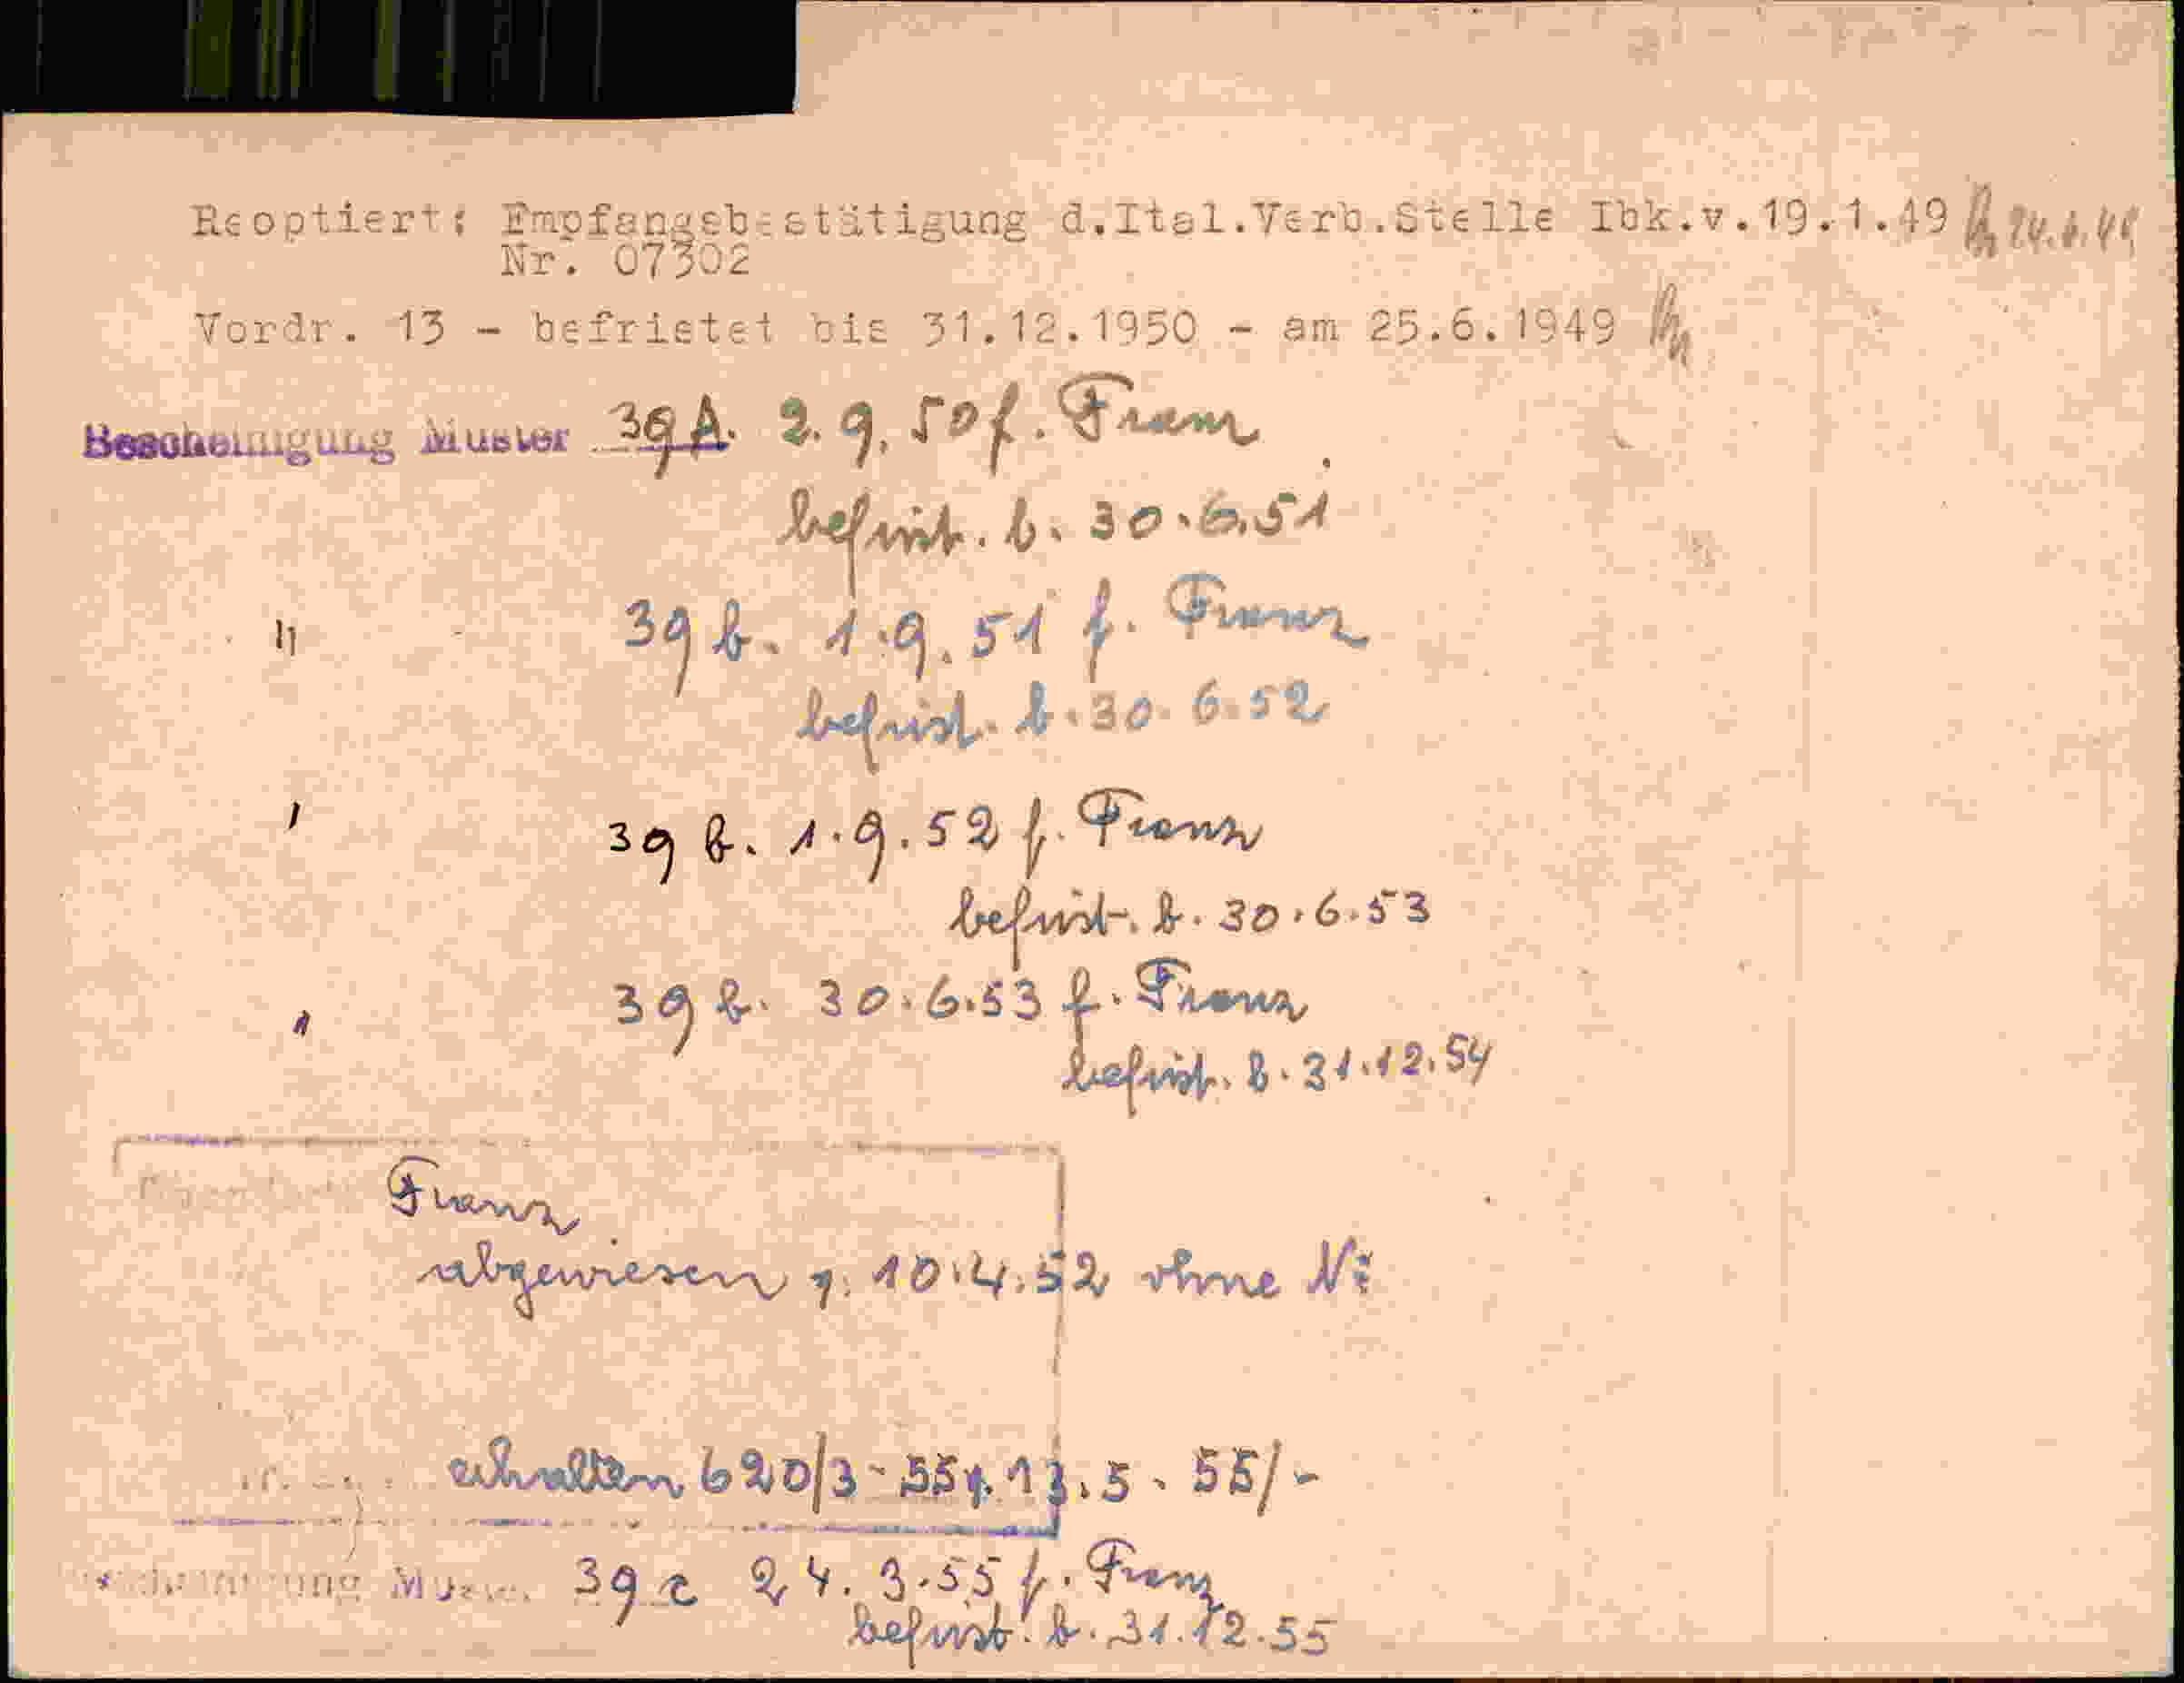 Reoptiert: Empfangsbestätigung d.Ital.Verb.Stelle Ibk.v.19.1.49
Nr. 07302
Vordr. 13 - befristet bis 31.12.1950 - am 25.6.1949
Bescheinigung Muster 39 A. 2.9.50 f. Franz
befrist. b. 30.6.51
" 39 b. 1.9.51 f. Franz
befrist. b. 30.6.52
" 39 b. 1.9.52 f. Franz
befrist. b. 30.6.53
" 39 b. 30.6.53 f. Franz
befrist. b. 31.12.54
Franz
abgewiesen 10.4.52 ohne Nr
erhalten 620/3-55 13.5.55/-
Bescheinigung Muster 39 c 24.3.55 f. Franz
befrist. b. 31.12.55